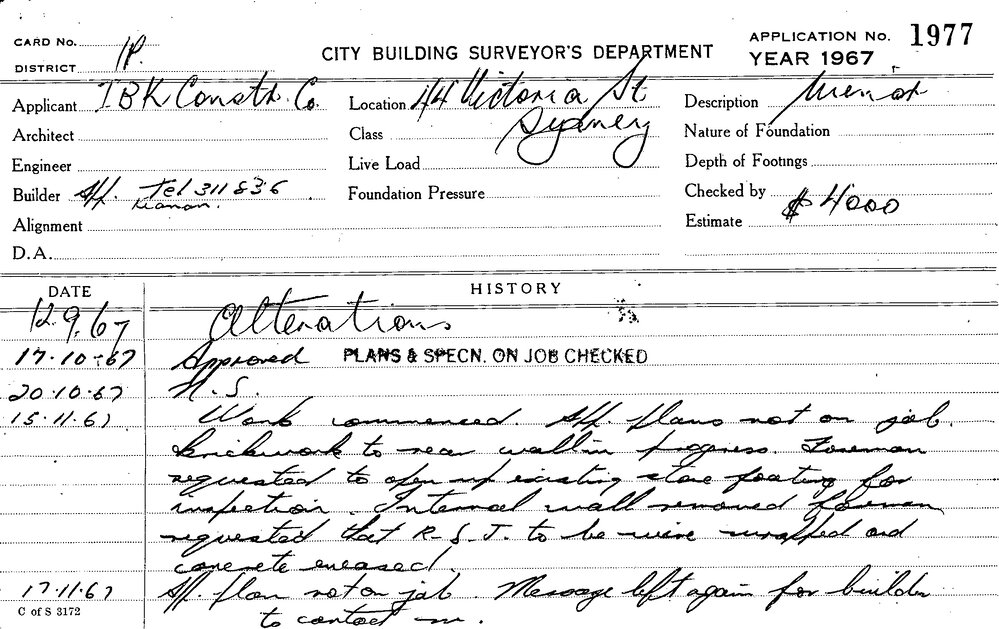 CARD No.
DISTRICT 1P.
CITY BUILDING SURVEYOR'S DEPARTMENT
APPLICATION No. 1977
YEAR 1967
Applicant TBK Constr. Co. Location 44 Victoria St Description
Architect Class Sydney Nature of Foundation
Engineer Live Load Depth of Footings
Builder App. Tel 311836 Foundation Pressure Checked by
Alignment Estimate $ 4000
D.A.
DATE HISTORY
12.9.67 Alterations
17.10.67 Approved PLANS & SPECN. ON JOB CHECKED
20.10.67 N.S.
15.11.67 Work commenced. App. plans not on job.
Brickwork to rear wall in progress. Foreman
requested to open up existing stone footing for
inspection. Internal wall removed foreman
requested that R.S.J. to be wire wrapped and
concrete encased.
17.11.67 App. plan not on job. Message left again for builder
to contact me.
C of S 3172